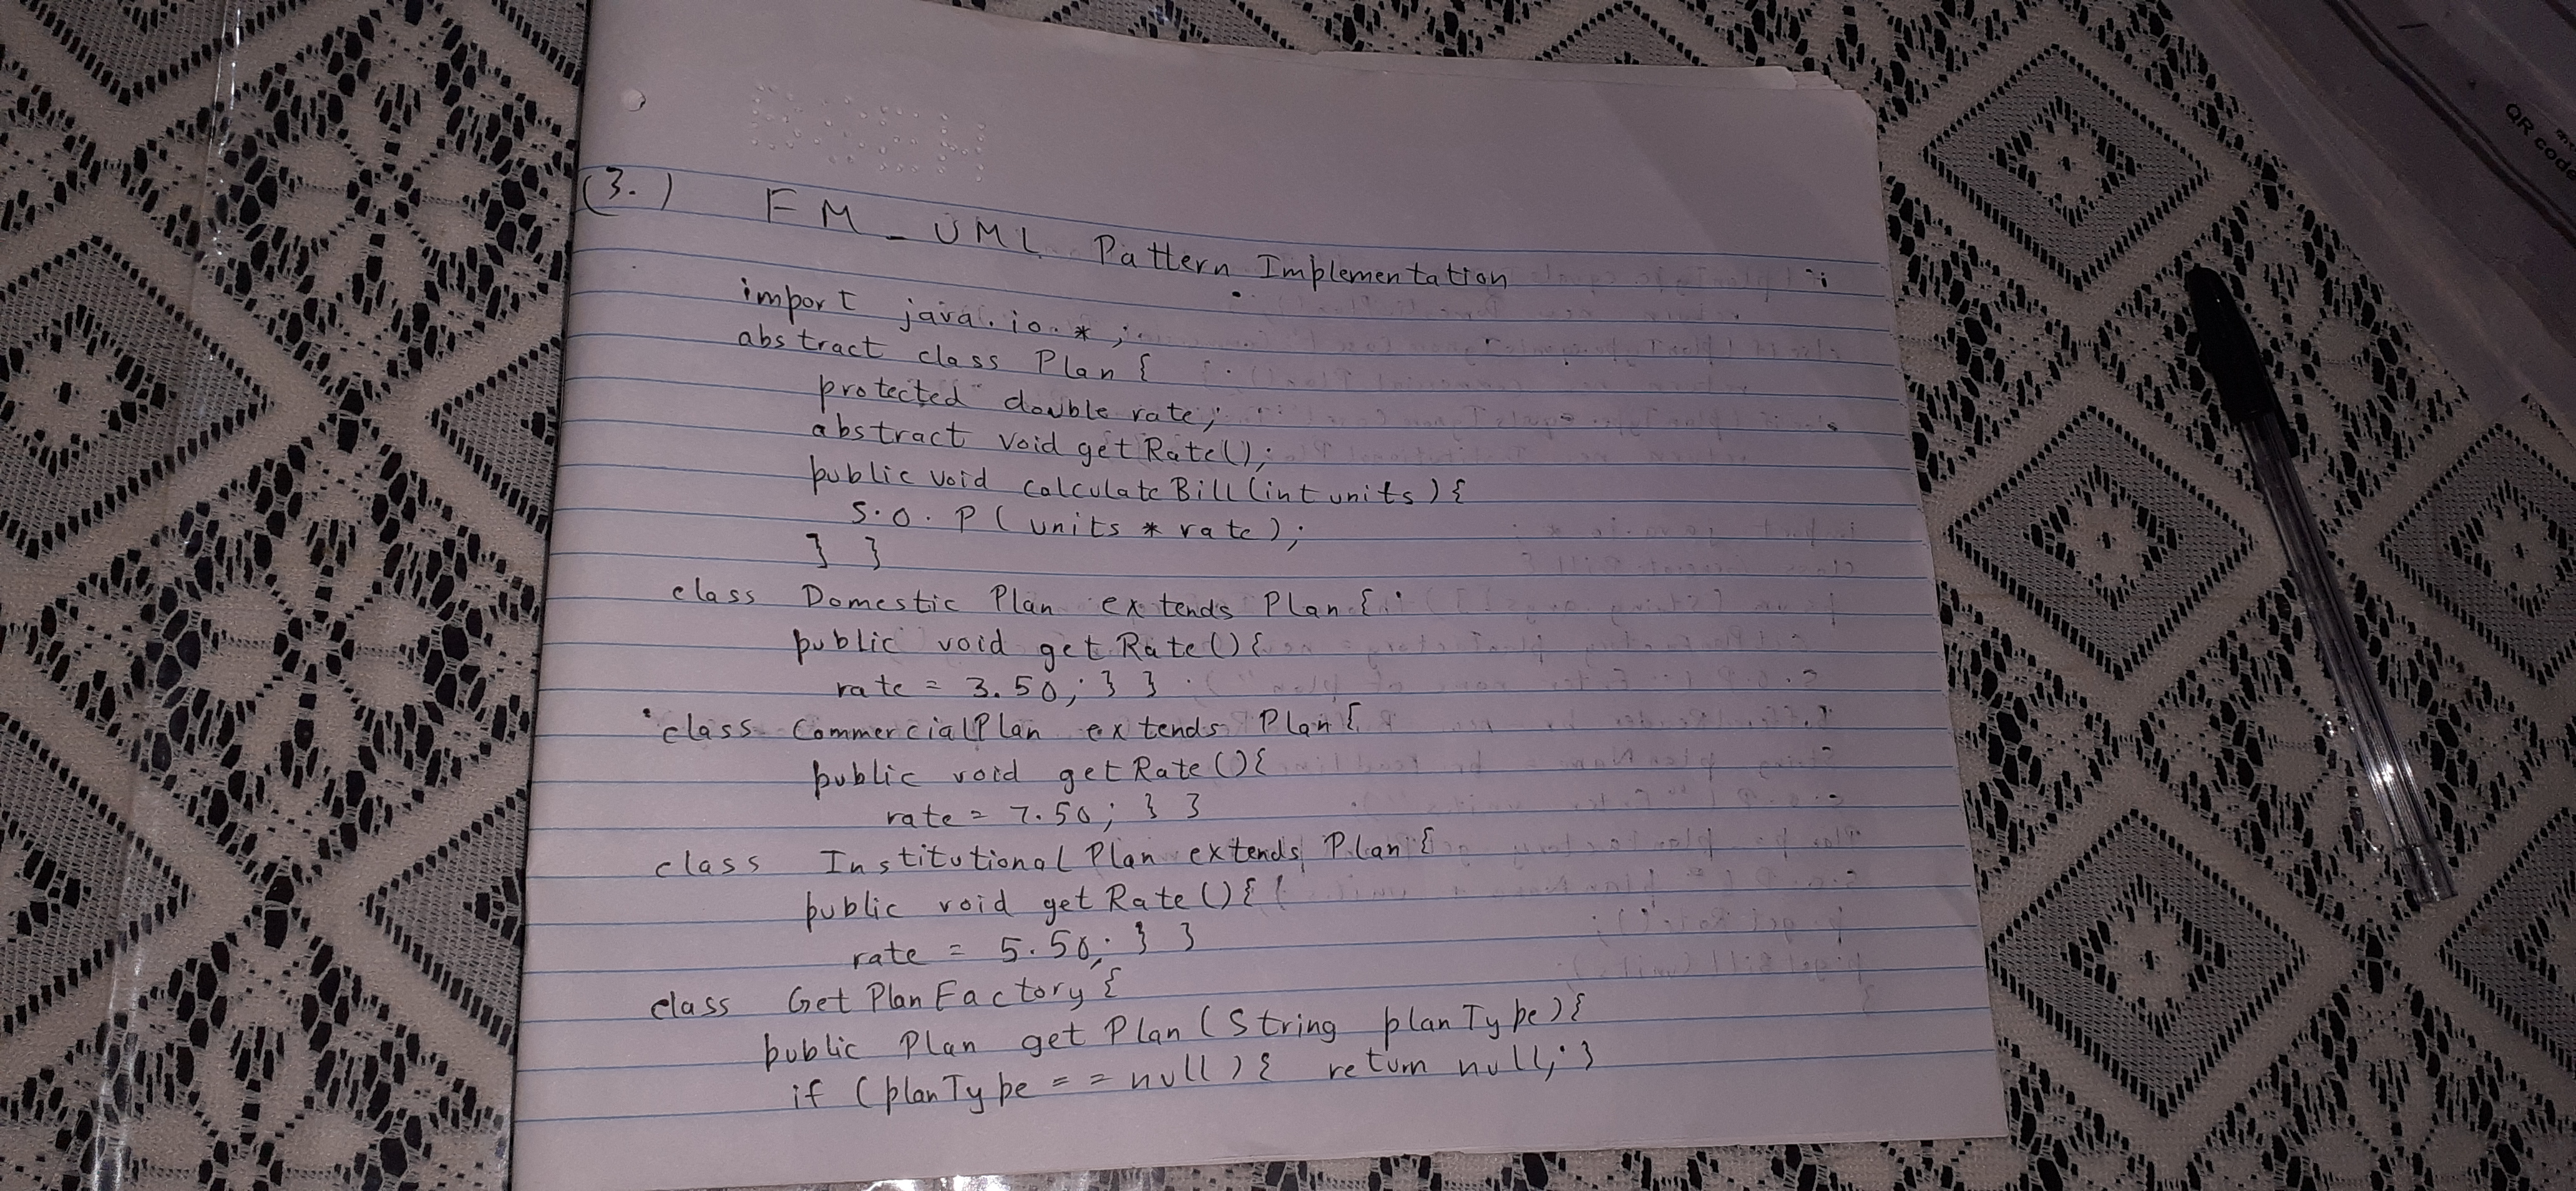 (3.) FM_UML Pattern Implementation :
import java.io.*;
abstract class Plan {
protected double rate;
abstract void getRate();
public void calculateBill(int units){
S.O.P(units * rate);
} }
class Domestic Plan extends Plan {
public void getRate(){
rate = 3.50; } }
class CommercialPlan extends Plan {
public void getRate(){
rate = 7.50; } }
class Institutional Plan extends Plan {
public void getRate(){
rate = 5.50; } }
class GetPlanFactory {
public Plan getPlan(String planType){
if (planType == null){ return null; }
QR code